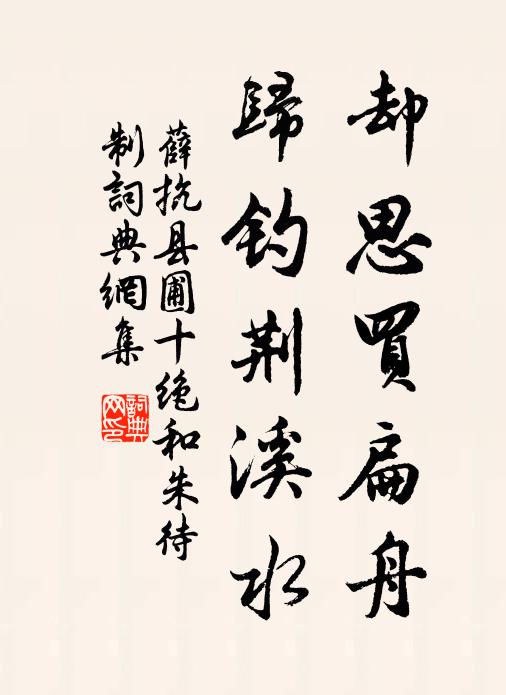 却思買扁舟
歸钓荆溪水
薛抗县圃十绝和朱待
制詞典網集
詞典
网印